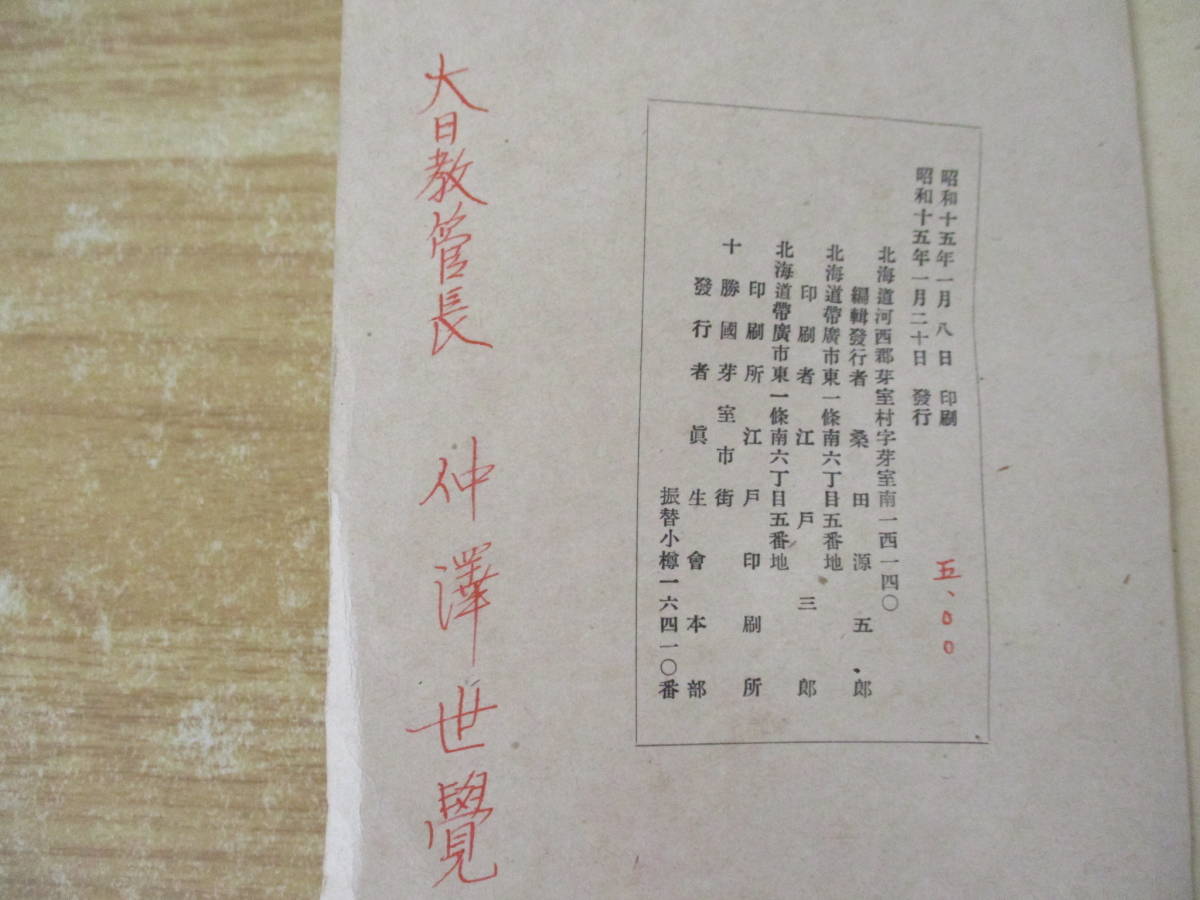 昭和十五年一月八日 印刷
昭和十五年一月二十日 發行
北海道河西郡芽室村字芽室南一西一四〇
編輯發行者 桑田源五郎
北海道帶廣市東一條南六丁目五番地
印刷者 江戸三郎
北海道帶廣市東一條南六丁目五番地
印刷所 江戸印刷所
十勝國芽室市街
發行者 眞生會本部
振替小樽一六四一〇番
五、00
大日教管長 仲澤世覺